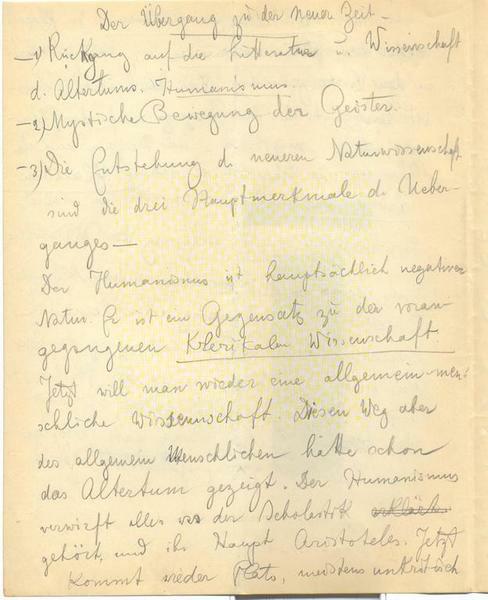 Der Übergang zu der neuen Zeit —
— 1) Rückgang auf die Litteratur u. Wissenschaft
d. Altertums. Humanismus.
— 2) Mystische Bewegung der Geister.
— 3) Die Entstehung d. neueren Naturwissenschaft
sind die drei Hauptmerkmale d. Ueber-
ganges —
Der Humanismus ist hauptsächlich negativer
Natur. Er ist ein Gegensatz zu der voran-
gegangenen Klerikalen Wissenschaft.
Jetzt will man wieder eine allgemein-men-
schliche Wissennschaft. Diesen Weg aber
des allgemein Menschlichen hätte schon
das Altertum gezeigt. Der Humanismus
verwirft alles was der Scholastik
gehört, und ihr Haupt Aristoteles. Jetzt
kommt wieder Plato, meistens unkritisch